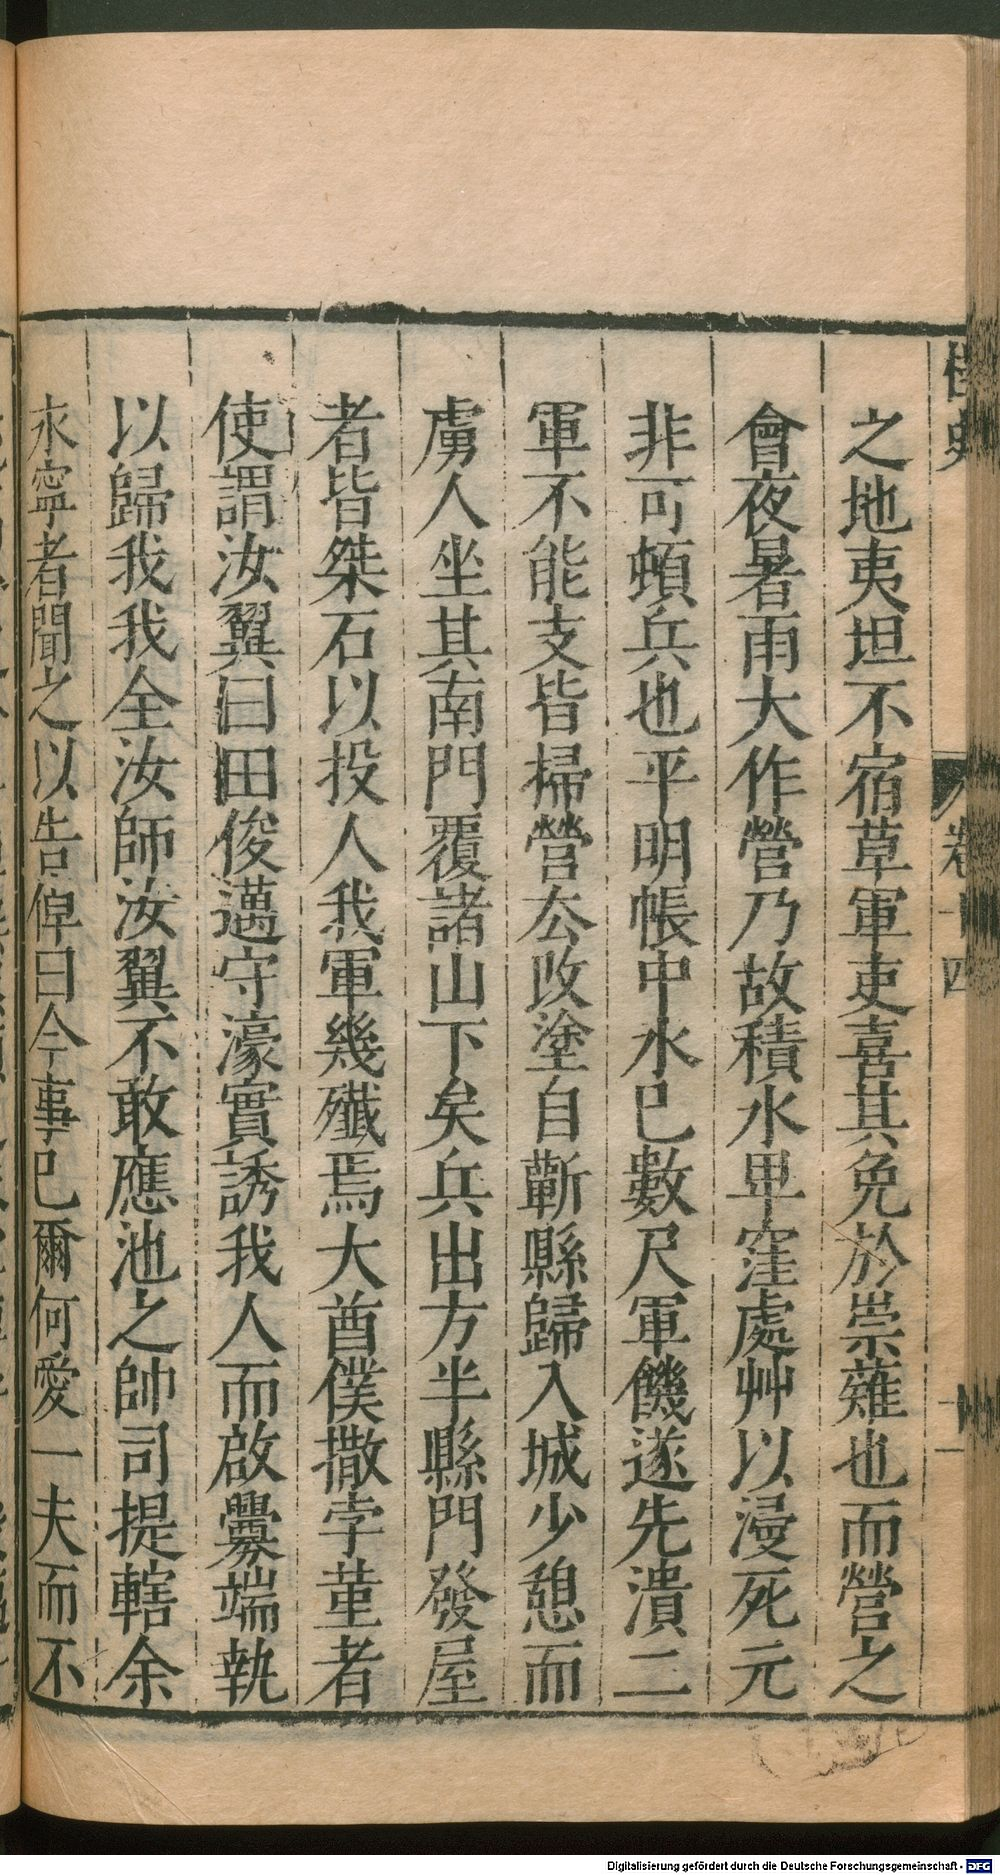 桯史
卷十四
十一
之地夷坦不宿草軍吏喜其免於崇薙也而營之
會夜暑雨大作營乃故積水卑窪處艸以漫死元
非可頓兵也平明帳中水已數尺軍饑遂先潰二
軍不能支皆掃營去改塗自蘄縣歸入城少憩而
虜人坐其南門覆諸山下矣兵出方半縣門發屋
者皆桀石以投人我軍幾殲焉大酋僕撒孛菫者
使謂汝翼曰田俊邁守濠實誘我人而啟釁端執
以歸我我全汝師汝翼不敢應池之帥司提轄余
永寧者聞之以告倬曰今事已爾何愛一夫而不
Digitalisierung gefördert durch die Deutsche Forschungsgemeinschaft - DFG